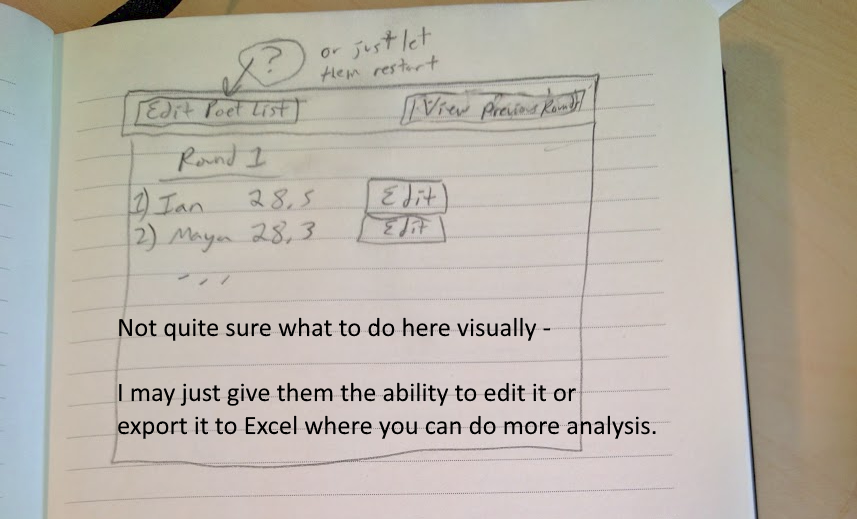 ? or just let
them restart
Edit Poet List View Previous Round
Round 1
1) Ian 28.5 Edit
2) Maya 28.3 Edit
...
Not quite sure what to do here visually -
I may just give them the ability to edit it or
export it to Excel where you can do more analysis.